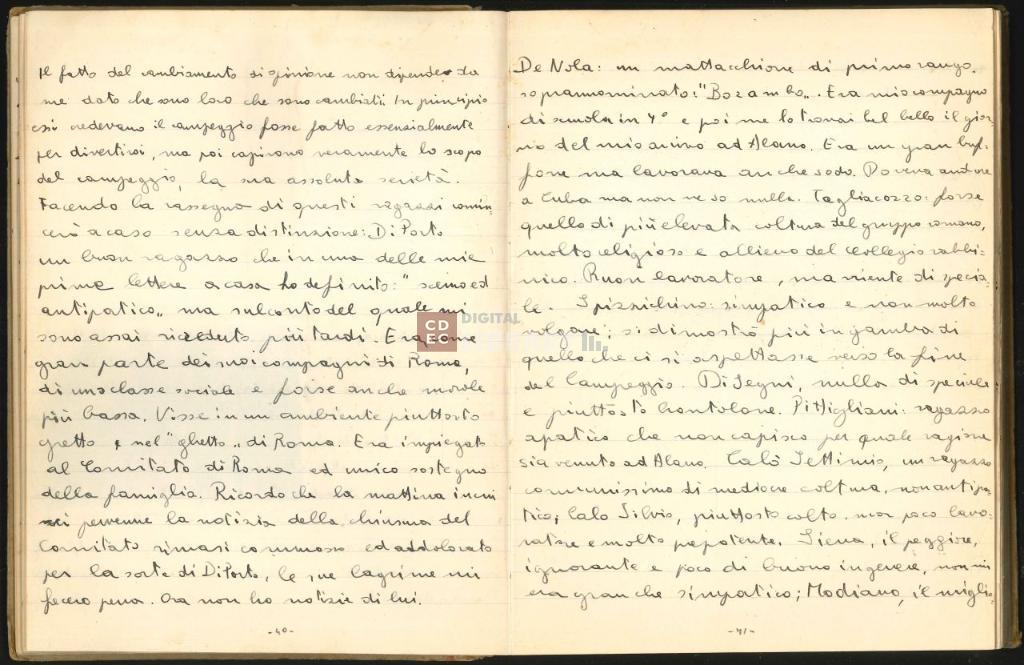 Il fatto del cambiamento di opinione non dipende da
me dato che sono loro che sono cambiati. In principio
essi credevano il campeggio fosse fatto essenzialmente
per divertirsi, ma poi capirono veramente lo scopo
del campeggio, la sua assoluta serietà.
Facendo la rassegna di questi ragazzi comin-
cerò a caso senza distinzione: Di Porto
un buon ragazzo che in una delle mie
prime lettere a casa ho definito: "scemo ed
antipatico„ ma sul conto del quale mi
sono assai ricreduto più tardi. Era come
gran parte dei suoi compagni di Roma,
di una classe sociale e forse anche morale
più bassa. Visse in un ambiente piuttosto
gretto, nel "ghetto„ di Roma. Era impiegato
al Comitato di Roma ed unico sostegno
della famiglia. Ricordo che la mattina in cui
pervenne la notizia della chiusura del
Comitato rimasi commosso ed addolorato
per la sorte di Di Porto, le sue lagrime mi
fecero pena. Ora non ho notizie di lui.
-40-
De Nola: un mattacchione di primo rango.
soprannominato: "Bozambo„. Era mio compagno
di scuola in 4° e poi me lo trovai bel bello il gior-
no del mio arrivo ad Alano. Era un gran buf-
fone ma lavorava anche sodo. Doveva andare
a Cuba ma non ne so nulla. Tagliacozzo: forse
quello di più elevata coltura del gruppo romano,
molto religioso e allievo del Collegio rabbi-
nico. Buon lavoratore, ma niente di specia-
le. Spizzichino: simpatico e non molto
volgare; si dimostrò più in gamba di
quello che ci si aspettasse verso la fine
del Campeggio. Di Segni, nulla di speciale
e piuttosto bontolone. Pittigliani: ragazzo
apatico che non capisco per quale ragione
sia venuto ad Alano. Calò Settimio, un ragazzo
comunissimo di mediocre coltura, non antipa-
tico; Calo Silvio, piuttosto colto. ma poco lavo-
ratore e molto prepotente. Siena, il peggiore,
ignorante e poco di buono in genere, non mi
era gran che simpatico; Modiano, il miglio-
-41-
DIGITAL
CD
EC